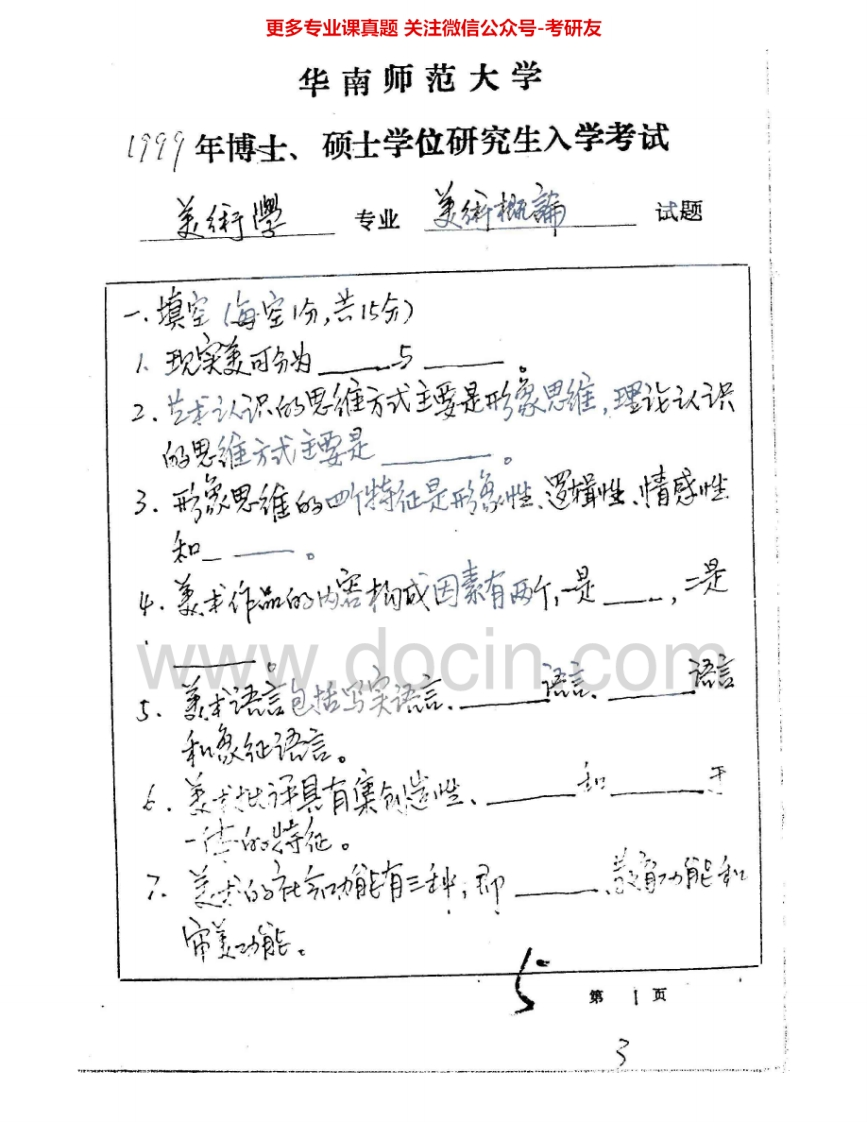 更多专业课真题 关注微信公众号-考研友
华南师范大学
1999年博士、硕士学位研究生入学考试
美術學 专业 美術概論 试题
一.填空(每空1分,共15分)
1. 现实美可分为______与______。
2. 艺术认识的思维方式主要是形象思维,理论认识
的思维方式主要是______。
3. 形象思维的四个特征是形象性、逻辑性、情感性
和______。
4. 美术作品的内容构成因素有两个,一是____,二是
______。
www.docin.com
5. 美术语言包括写实语言、______语言、______语言
和象征语言。
6. 美术批评具有集创造性、______和______于
一体的特征。
7. 美术的社会功能有三种,即______、教育功能和
审美功能。
5
第 1 页
3